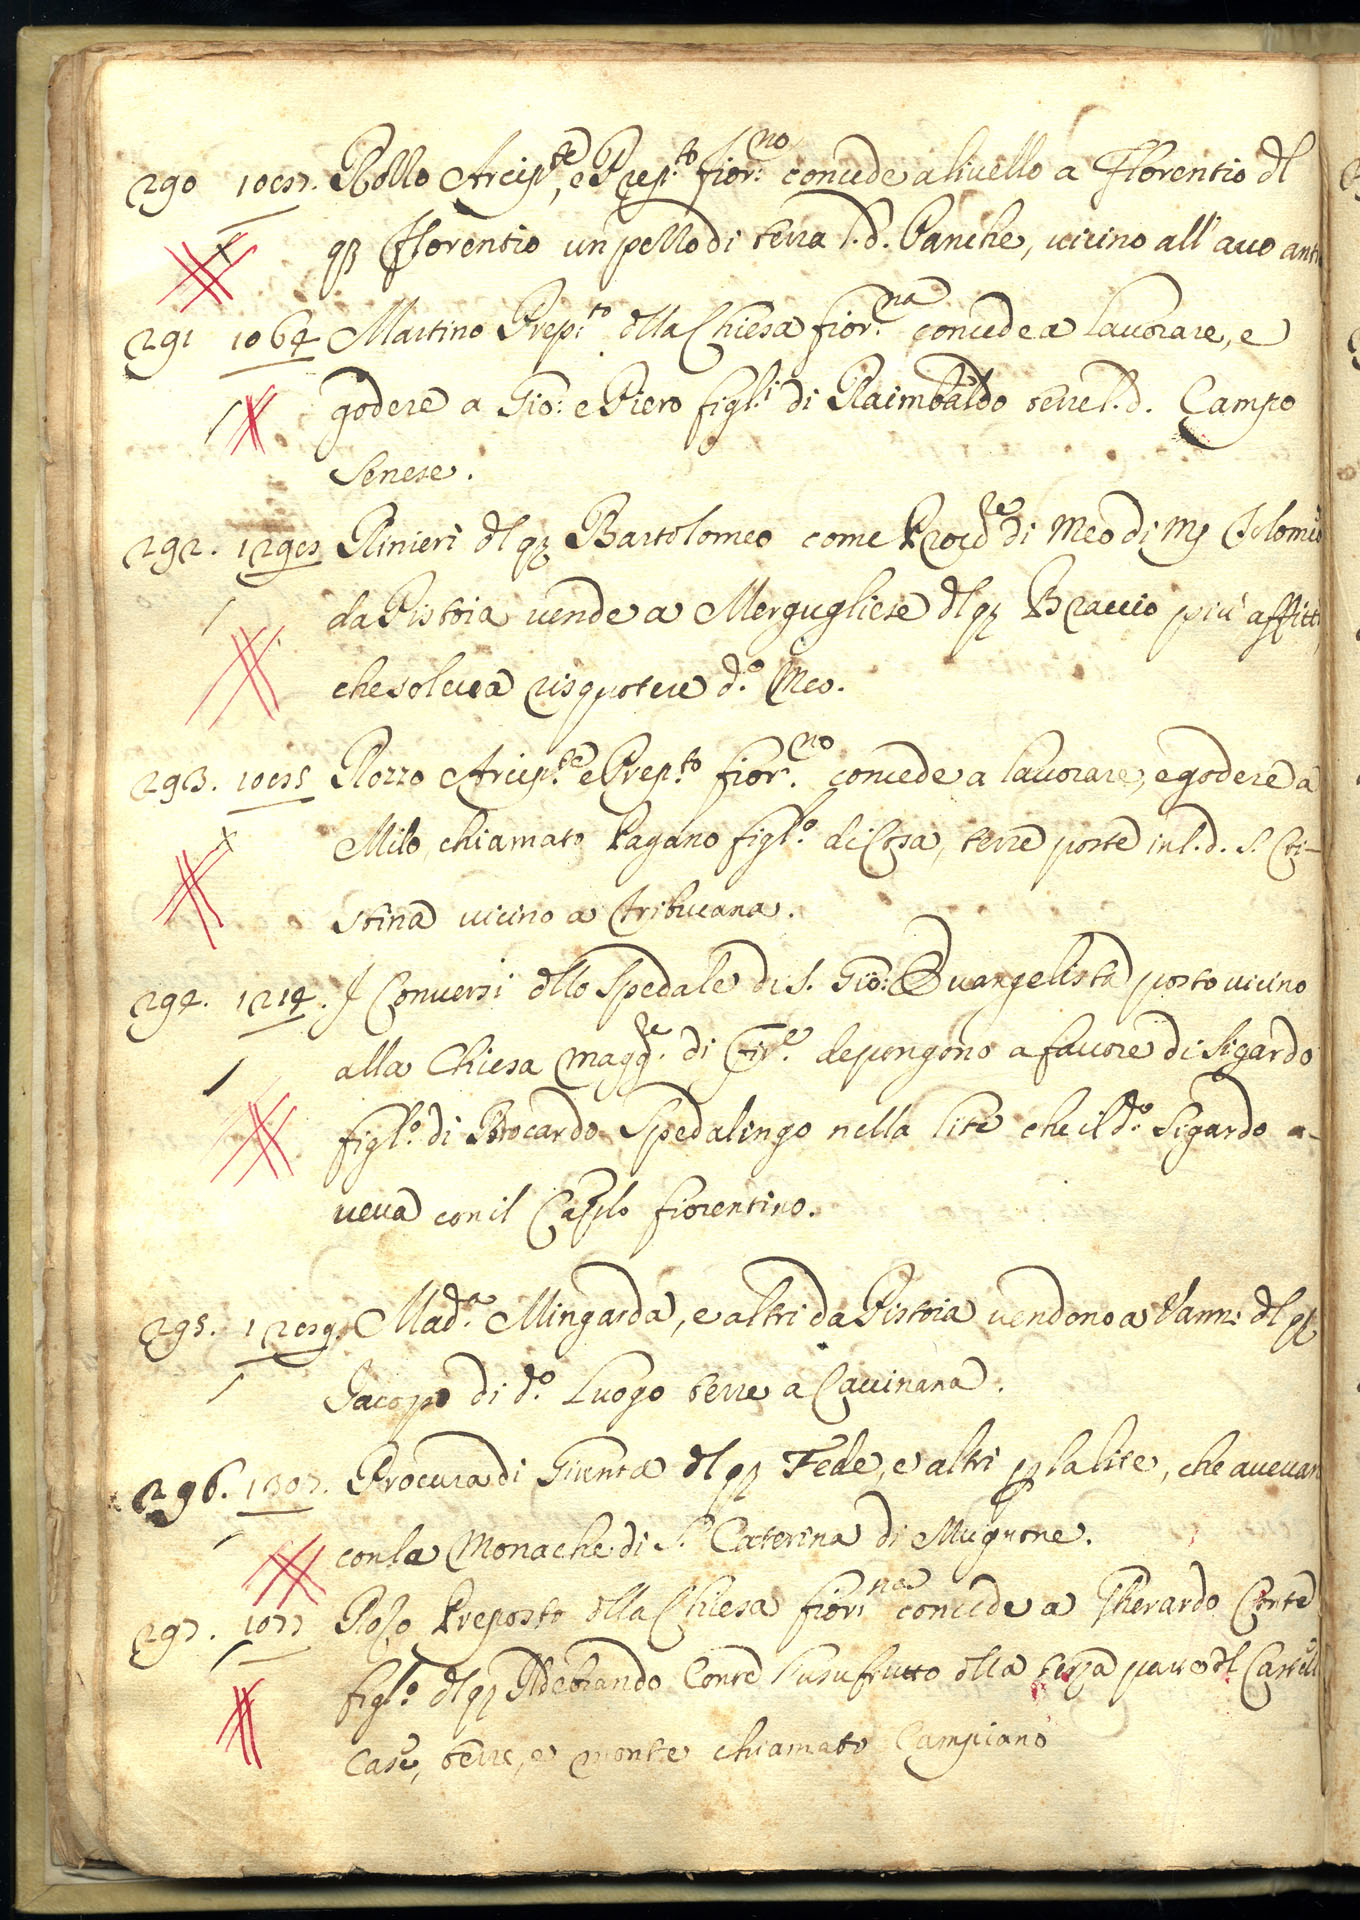 290 Rollo Arcip.te, e Prep.to fior.no concede a livello a Florentio dl
qz Florentio un pezzo di terra l.d. Panche, vicino all'avo
291 1064 Martino Prep.to dlla Chiesa fior.na concede a lavorare, e
godere a Gio: e Piero figl.i di Raimbaldo terre l.d. Campo
Senese.
292. Rinieri dl qz Bartolomeo come Proc.re di Meo di Mr Tolomeo
da Pistoia vende a Mergugliese dl qz Braccio più affitti,
che soleva risquotere d.o Meo.
293. Rozzo Arcip.te e Prep.to fior.no concede a lavorare, e godere a
Milo, chiamato Pagano figl.o di Cosa, terre poste in l.d. S. Cri-
stina vicino a Tribucana.
294. 1214. I Conversi dllo Spedale di S. Gio: Evangelista posto vicino
alla Chiesa magg.re di Fir.e depongono a favore di Sigardo
figl.o di Brocardo Spedalingo nella lite che il d.o Sigardo a-
veva con il Caplo fiorentino.
295. Mad.a Mingarda, e altri da Pistoia vendono a Vanni dl qz
Jacopo di d.o Luogo terre a Cavinana.
296. 1307. Procura di Giunta dl qz Fede, e altri p la lite, che avevan
con la Monache di S.a Caterina di Mugnone.
297. 1077 Rozo Preposto dlla Chiesa fior.na concede a Gherardo Conte
figl.o dl qz Ildebrando Conte l'usufrutto dlla terza parte dl Castell
Case, terre, e monte chiamato Campiano